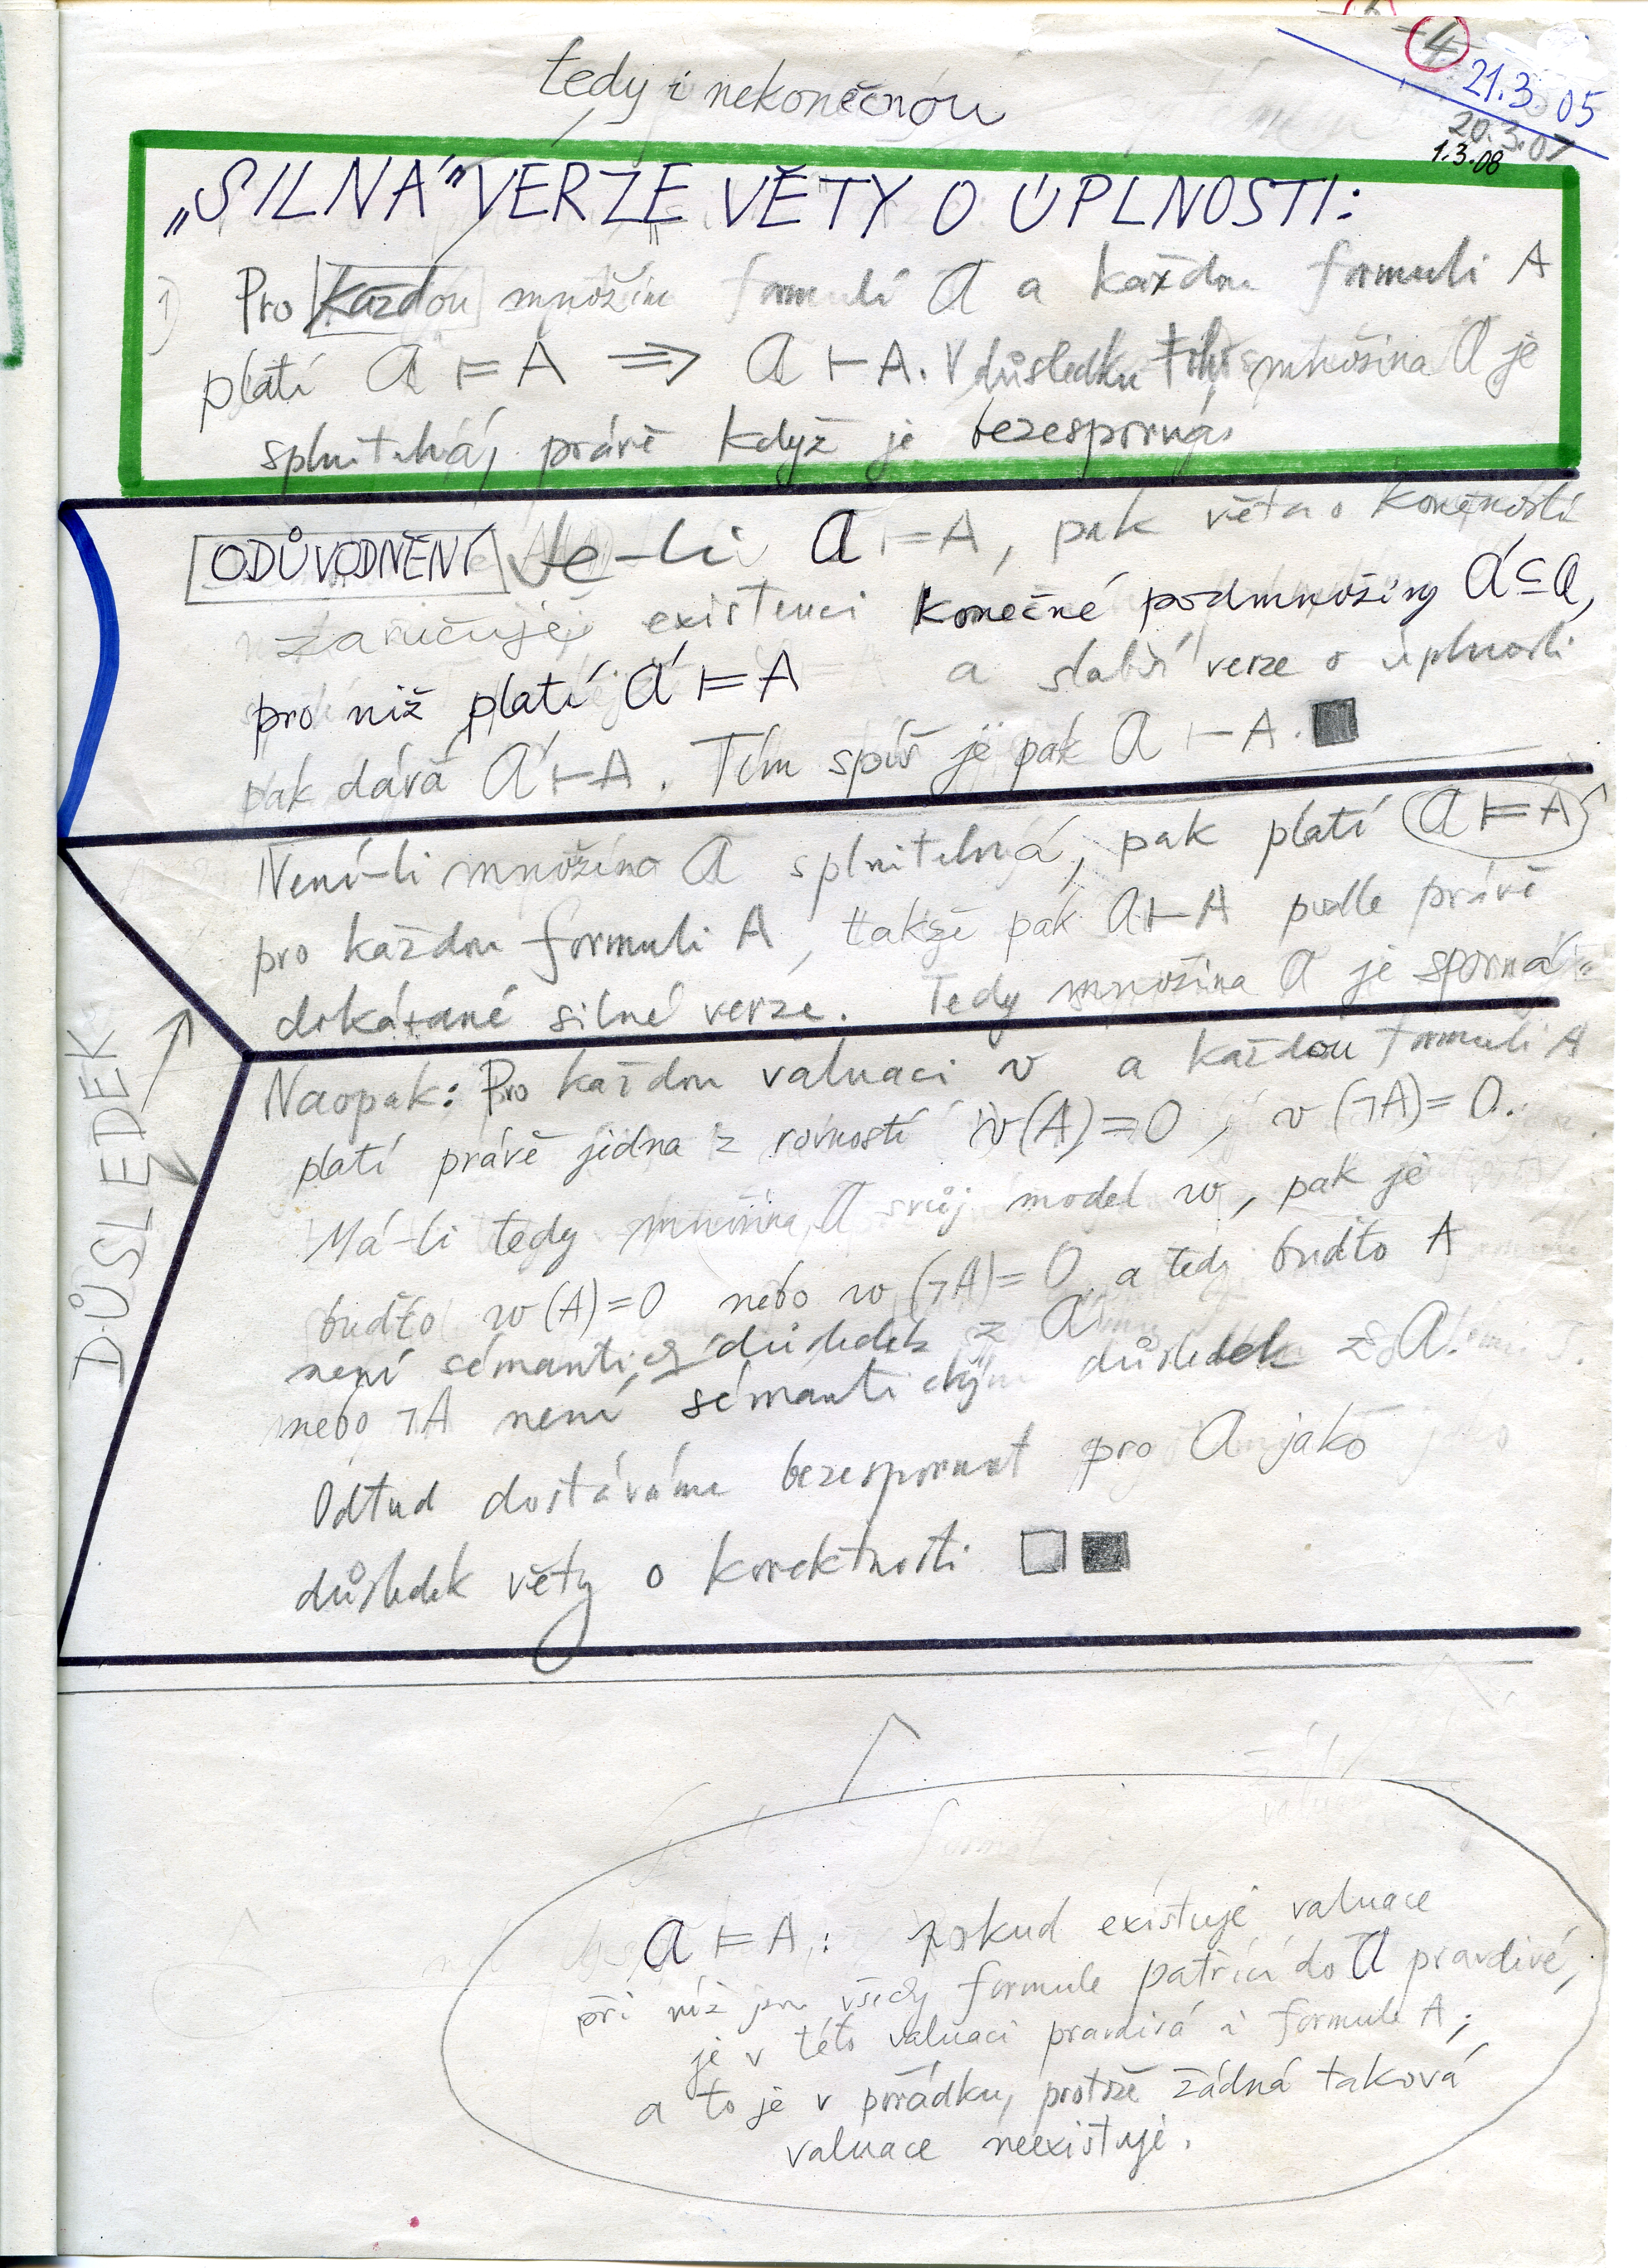 4
21.3.05
20.3.07
1.3.08
tedy i nekonečnou
„SILNÁ" VERZE VĚTY O ÚPLNOSTI:
1) Pro každou množinu formulí 𝒜 a každou formuli A
platí 𝒜 ⊨ A ⟹ 𝒜 ⊢ A. V důsledku toho množina 𝒜 je
splnitelná, právě když je bezesporná.
ODŮVODNĚNÍ Je-li 𝒜 ⊨ A, pak věta o konečnosti
zaručuje existenci konečné podmnožiny 𝒜' ⊆ 𝒜,
pro niž platí 𝒜' ⊨ A a slabší verze o úplnosti
pak dává 𝒜' ⊢ A. Tím spíš je pak 𝒜 ⊢ A. ■
Není-li množina 𝒜 splnitelná, pak platí 𝒜 ⊨ A
pro každou formuli A, takže pak 𝒜 ⊢ A podle právě
dokázané silné verze. Tedy množina 𝒜 je sporná.
DŮSLEDEK
Naopak: Pro každou valuaci v a každou formuli A
platí právě jedna z rovností v(A)=0, v(¬A)=0.
Má-li tedy množina 𝒜 svůj model w, pak je
buďto w(A)=0 nebo w(¬A)=0 a tedy buďto A
není sémantický důsledek z 𝒜
nebo ¬A není sémantickým důsledek z 𝒜.
Odtud dostáváme bezespornost pro 𝒜 jako
důsledek věty o korektnosti □ ■
𝒜 ⊨ A: pokud existuje valuace
při níž jsou všechy formule patřící do 𝒜 pravdivé,
je v této valuaci pravdivá i formule A;
a to je v pořádku, protože žádná taková
valuace neexistuje.